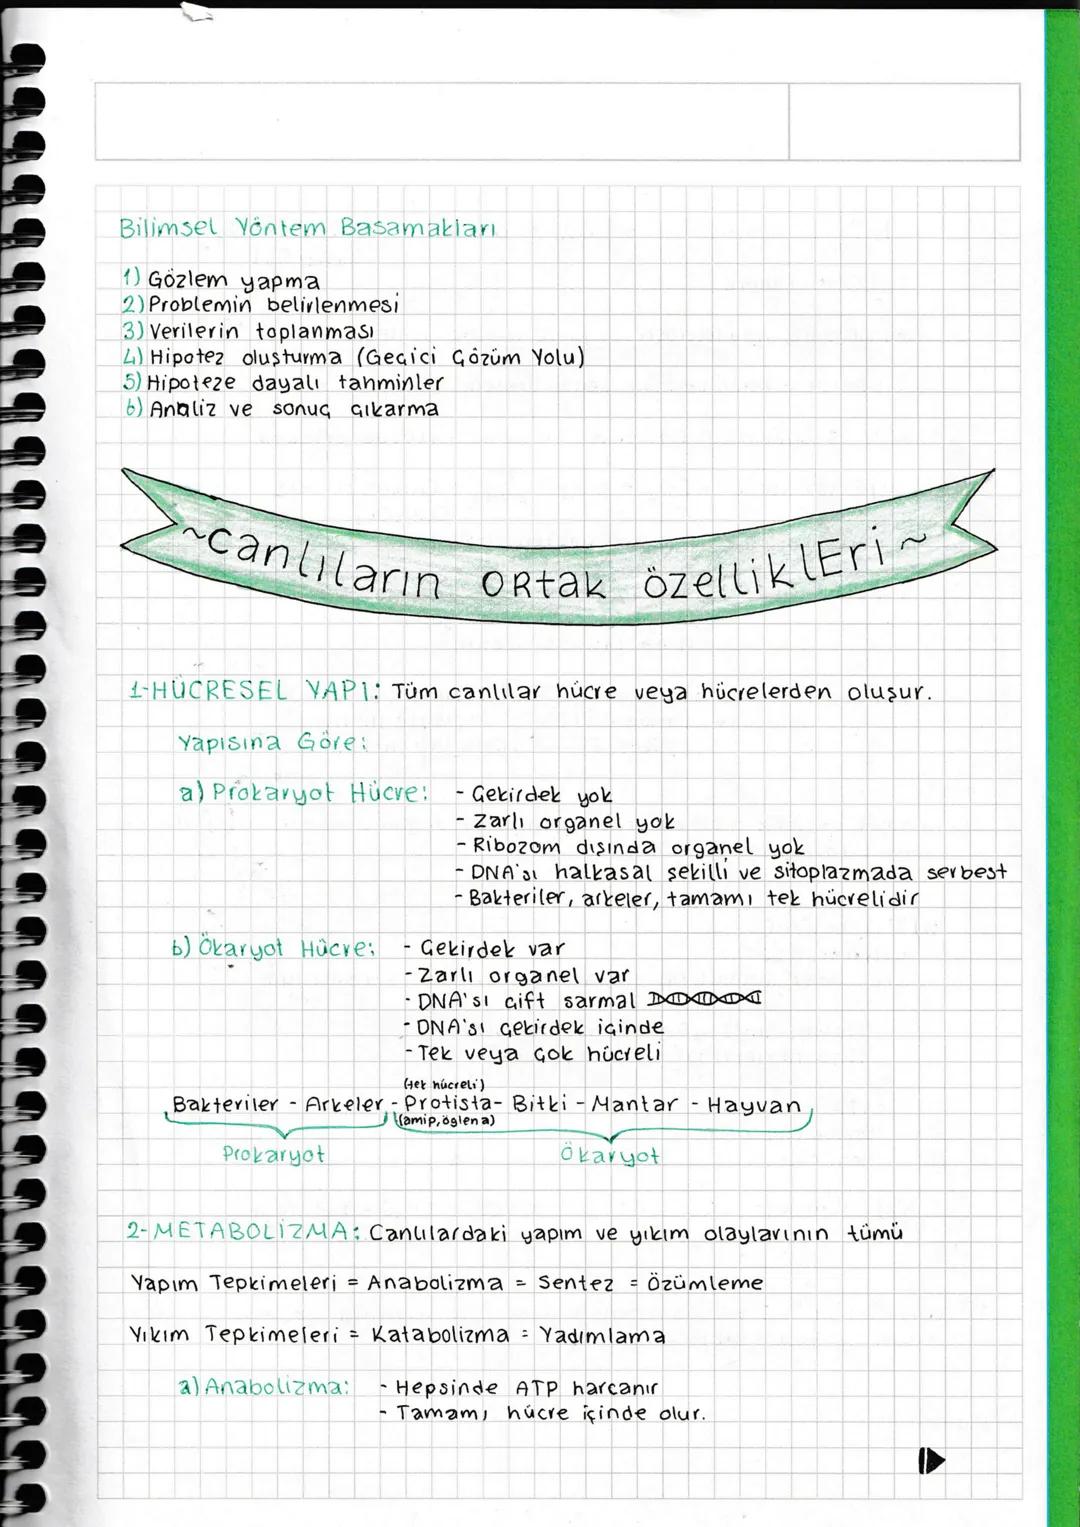 Bilimsel Yöntem Basamakları
1) Gözlem yapma
2) Problemin belirlenmesi
3) Verilerin toplanması
4) Hipotez oluşturma (Geçici Çözüm Yolu)
5) Hipoteze dayalı tahminler
6) Analiz ve sonuç çıkarma
~canlıların ORtak özelliklEri~
1-HÜCRESEL YAPI: Tüm canlılar hücre veya hücrelerden oluşur.
Yapısına Göre:
a) Prokaryot Hücre: - Çekirdek yok
- Zarlı organel yok
- Ribozom dışında organel yok
- DNA'sı halkasal şekilli ve sitoplazmada serbest
- Bakteriler, arkeler, tamamı tek hücrelidir
b) Ökaryot Hücre: - Çekirdek var
- Zarlı organel var
- DNA'sı çift sarmal
- DNA'sı çekirdek içinde
- Tek veya çok hücreli
(tek hücreli)
Bakteriler - Arkeler - Protista - Bitki - Mantar - Hayvan
(amip, öglena)
Prokaryot Ökaryot
2-METABOLİZMA: Canlılardaki yapım ve yıkım olaylarının tümü
Yapım Tepkimeleri = Anabolizma = Sentez = Özümleme
Yıkım Tepkimeleri = Katabolizma = Yadımlama
a) Anabolizma: - Hepsinde ATP harcanır
- Tamamı hücre içinde olur.